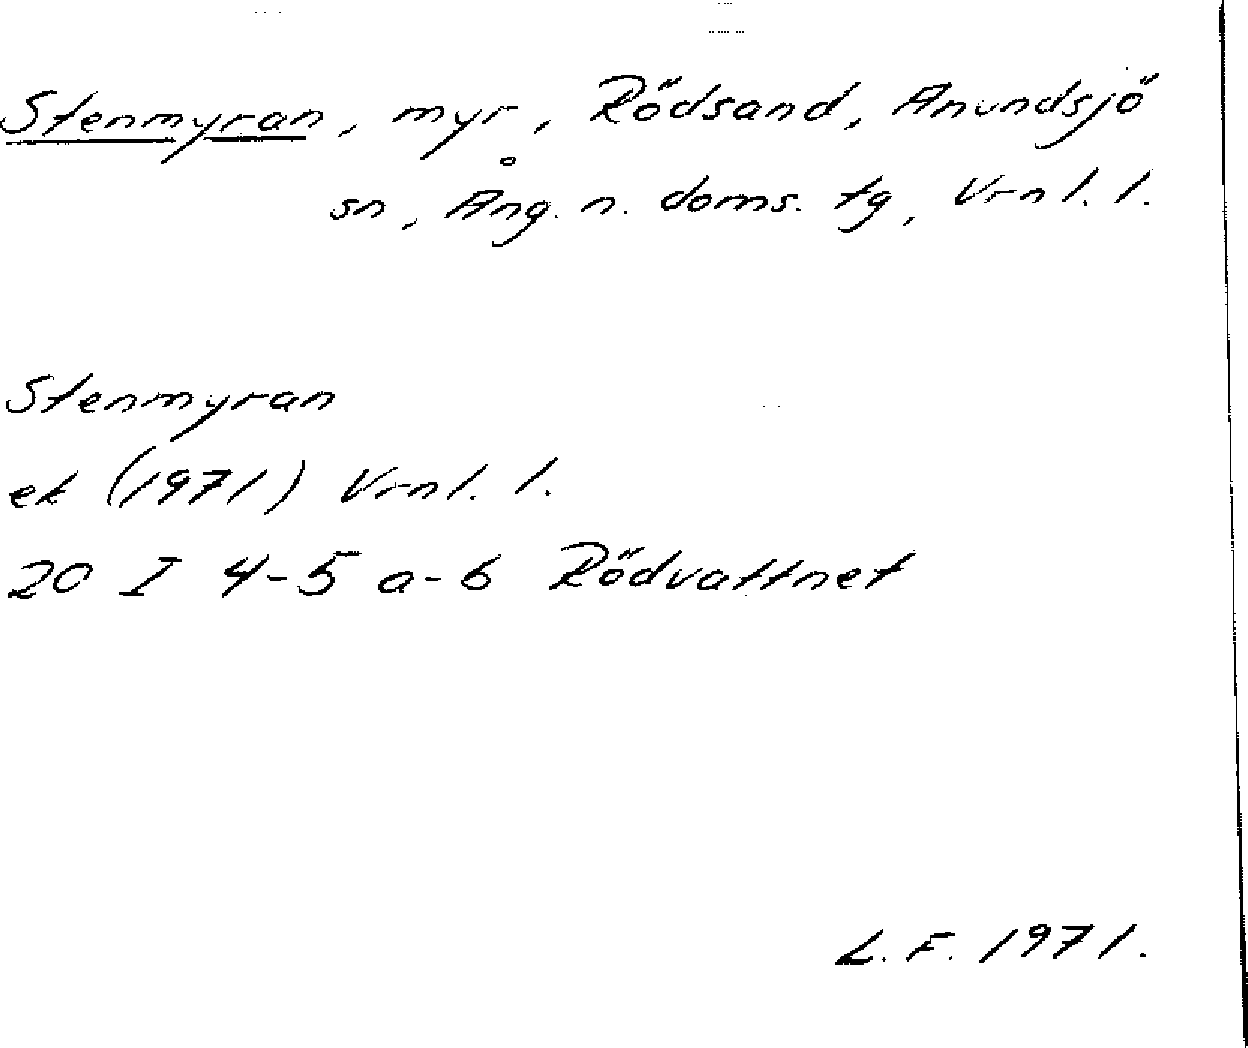 Stenmyran, myr, Rödsand, Anundsjö
sn, Ång. n. doms. tg, Vrnl. l.
Stenmyran
ek (1971) Vrnl. l.
20 I 4-5 a-b Rödvattnet
L. F. 1971.